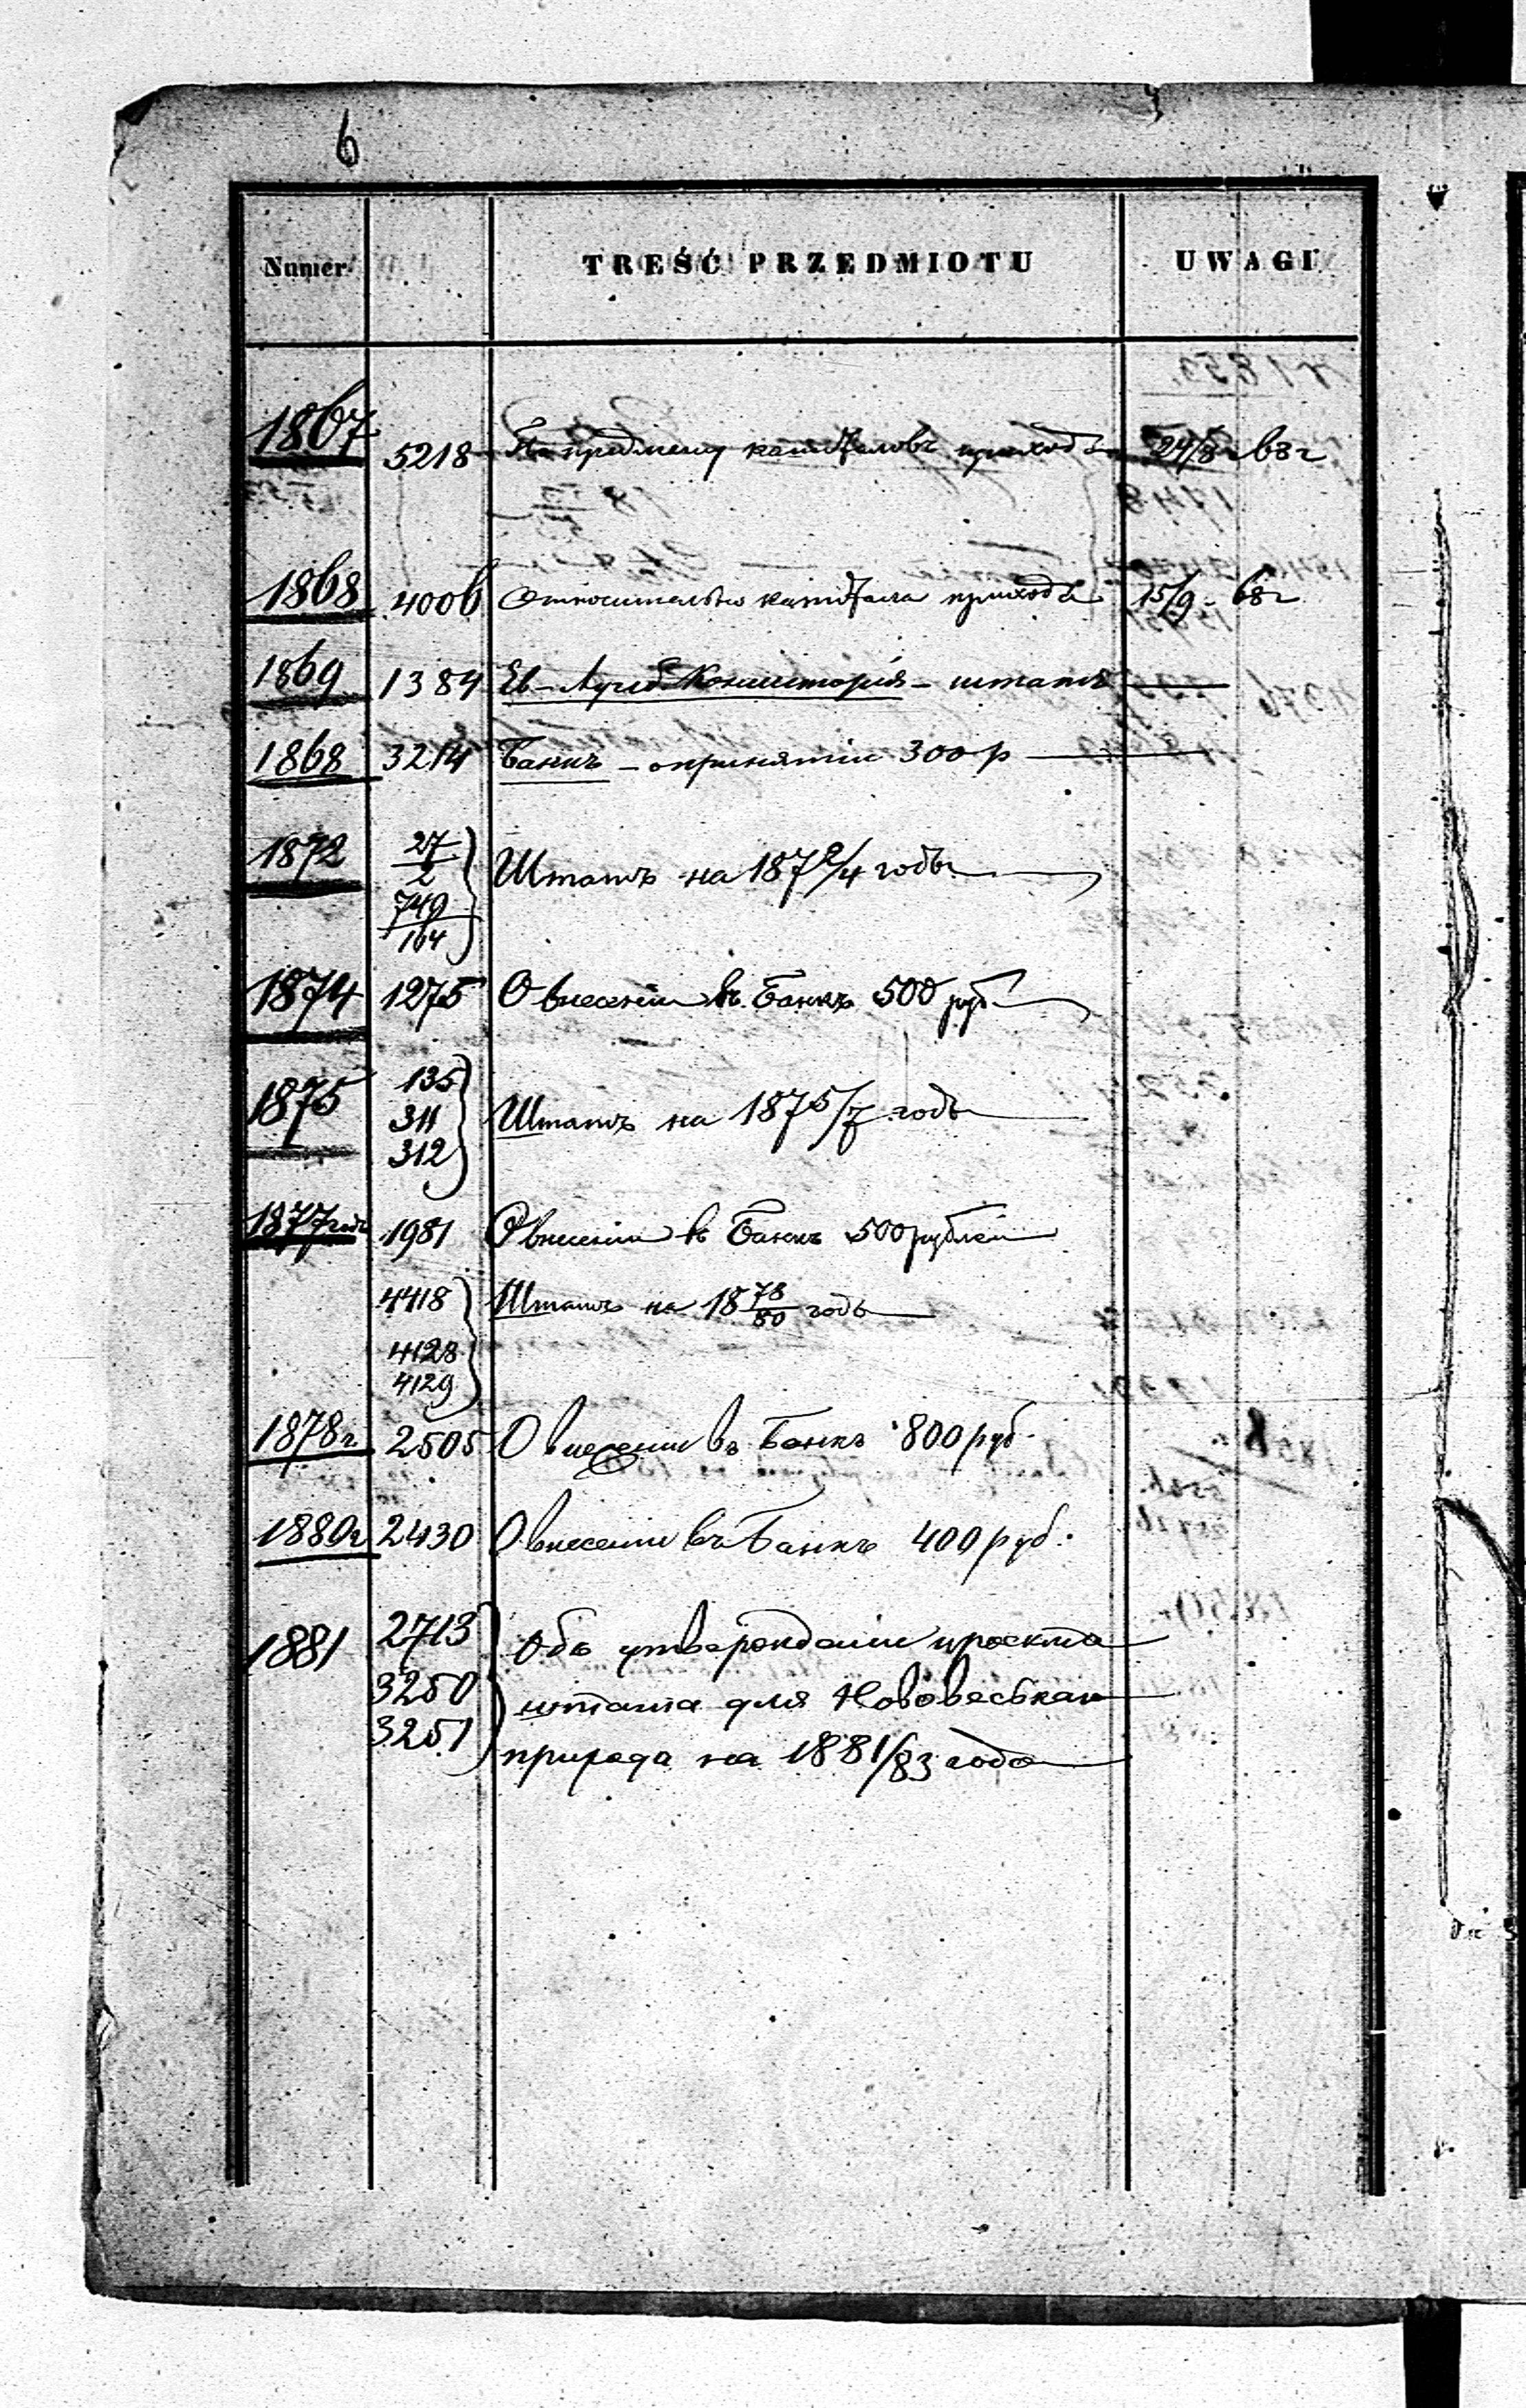 6
Numer TREŚĆ PRZEDMIOTU UWAGI
1867 5218 По предмету капиталовъ прихода 24/8 68 г
1868 4006 Относительно капитала прихода 15/9 - 68 г
1869 1384 Ев-Аугсб. Консисторія - штатъ
1868 3214 Банкъ - о принятіи 300 р
1872 27/2 749/164 Штатъ на 187 2/4 годы
1874 1275 О внесеніи въ Банкъ 500 руб
1875 135
311 Штатъ на 187 5/7 годы
312
1877 годъ 1981 О внесеніи въ Банкъ 500 рублей
4418 Штатъ на 18 78/80 годы
4128
4129
1878 г 2505 О внесеніи въ Банкъ 800 руб.
1880 г 2430 О внесеніи въ Банкъ 400 руб.
1881 2713 Объ утвержденіи проекта
3250 штата для Нововеськаго
3251 прихода на 1881/83 года